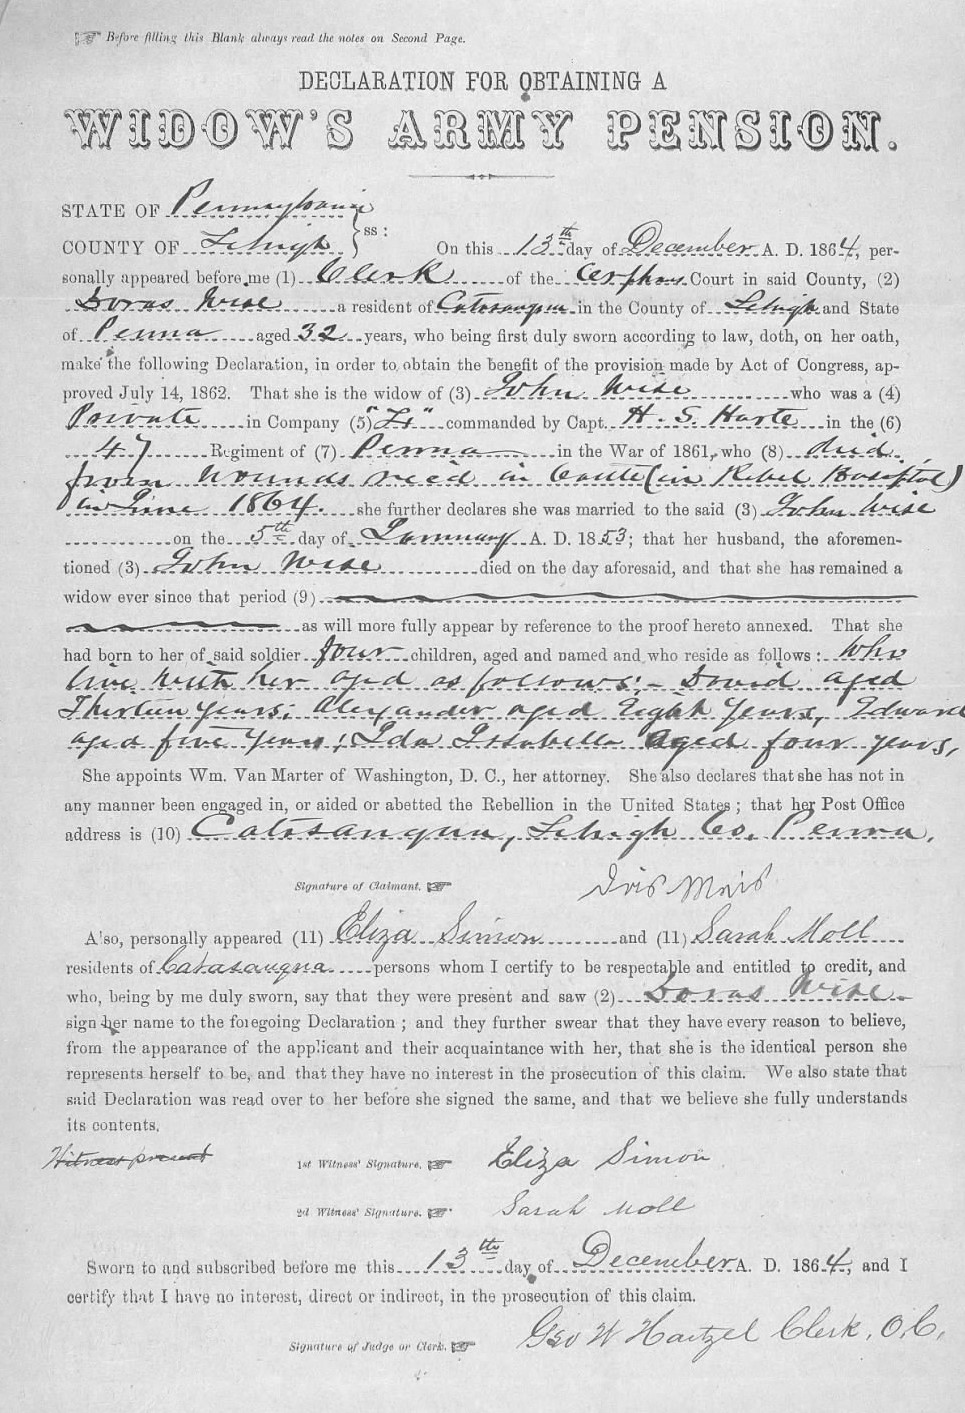 Before filling this Blank always read the notes on Second Page.
DECLARATION FOR OBTAINING A
WIDOW'S ARMY PENSION.
STATE OF Pennsylvania
ss:
COUNTY OF Lehigh On this 13th day of December A. D. 1864, per-
sonally appeared before me (1) Clerk of the Orphans Court in said County, (2)
Doras Wise a resident of Catasauqua in the County of Lehigh and State
of Penna aged 32 years, who being first duly sworn according to law, doth, on her oath,
make the following Declaration, in order to obtain the benefit of the provision made by Act of Congress, ap-
proved July 14, 1862. That she is the widow of (3) John Wise who was a (4)
Private in Company (5) commanded by Capt. H. S. Harte in the (6)
47 Regiment of (7) Penna in the War of 1861, who (8) died
from wounds rec'd in battle (in Rebel Hospital)
in June 1864. she further declares she was married to the said (3) John Wise
on the 5th day of January A. D. 1853; that her husband, the aforemen-
tioned (3) John Wise died on the day aforesaid, and that she has remained a
widow ever since that period (9)
as will more fully appear by reference to the proof hereto annexed. That she
had born to her of said soldier four children, aged and named and who reside as follows: Who
live with her aged as follows:- David aged
Thirteen years; Alexander aged Eight years, Edward
aged five years; Ida Issabella aged four years,
She appoints Wm. Van Marter of Washington, D. C., her attorney. She also declares that she has not in
any manner been engaged in, or aided or abetted the Rebellion in the United States; that her Post Office
address is (10) Catasauqua, Lehigh Co. Penna,
Signature of Claimant.
Also, personally appeared (11) Eliza Simon and (11) Sarah Moll
residents of Catasauqua persons whom I certify to be respectable and entitled to credit, and
who, being by me duly sworn, say that they were present and saw (2) Doras Wise
sign her name to the foregoing Declaration; and they further swear that they have every reason to believe,
from the appearance of the applicant and their acquaintance with her, that she is the identical person she
represents herself to be, and that they have no interest in the prosecution of this claim. We also state that
said Declaration was read over to her before she signed the same, and that we believe she fully understands
its contents.
Witness present
1st Witness' Signature. Eliza Simon
2d Witness' Signature. Sarah Moll
Sworn to and subscribed before me this 13th day of December A. D. 1864, and I
certify that I have no interest, direct or indirect, in the prosecution of this claim.
Signature of Judge or Clerk. Geo W Hartzel Clerk, O.C.